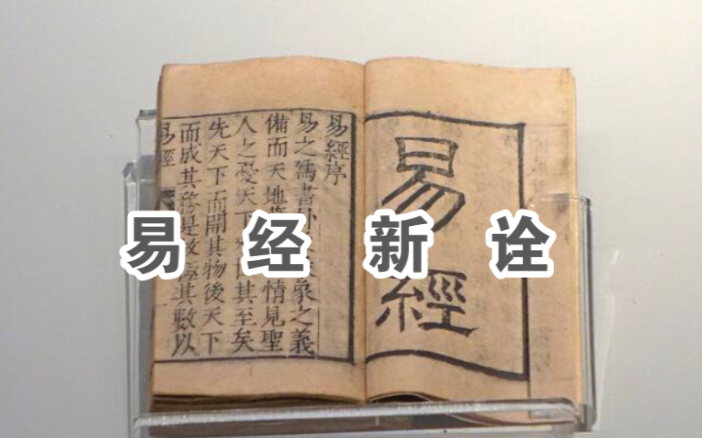 易 经 新 诠
易經
易經序
易之為書卦象之義
備而天地情見聖
人之憂天下其至矣
先天下而開其物後天下
而成其務是故極其數以
易經